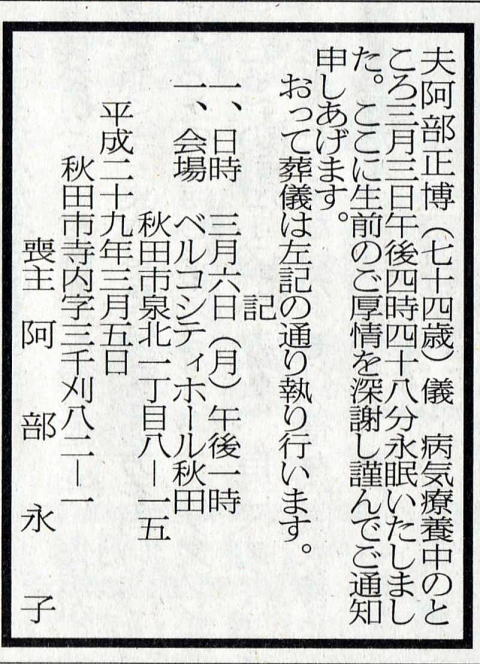 夫阿部正博（七十四歳）儀　病気療養中のと
ころ三月三日午後四時四十八分永眠いたしまし
た。ここに生前のご厚情を深謝し謹んでご通知
申しあげます。
おって葬儀は左記の通り執り行います。
記
一、日時　三月六日（月）午後一時
一、会場　ベルコシティホール秋田
秋田市泉北一丁目八―一五
平成二十九年三月五日
秋田市寺内字三千刈八二―一
喪主　阿部永子